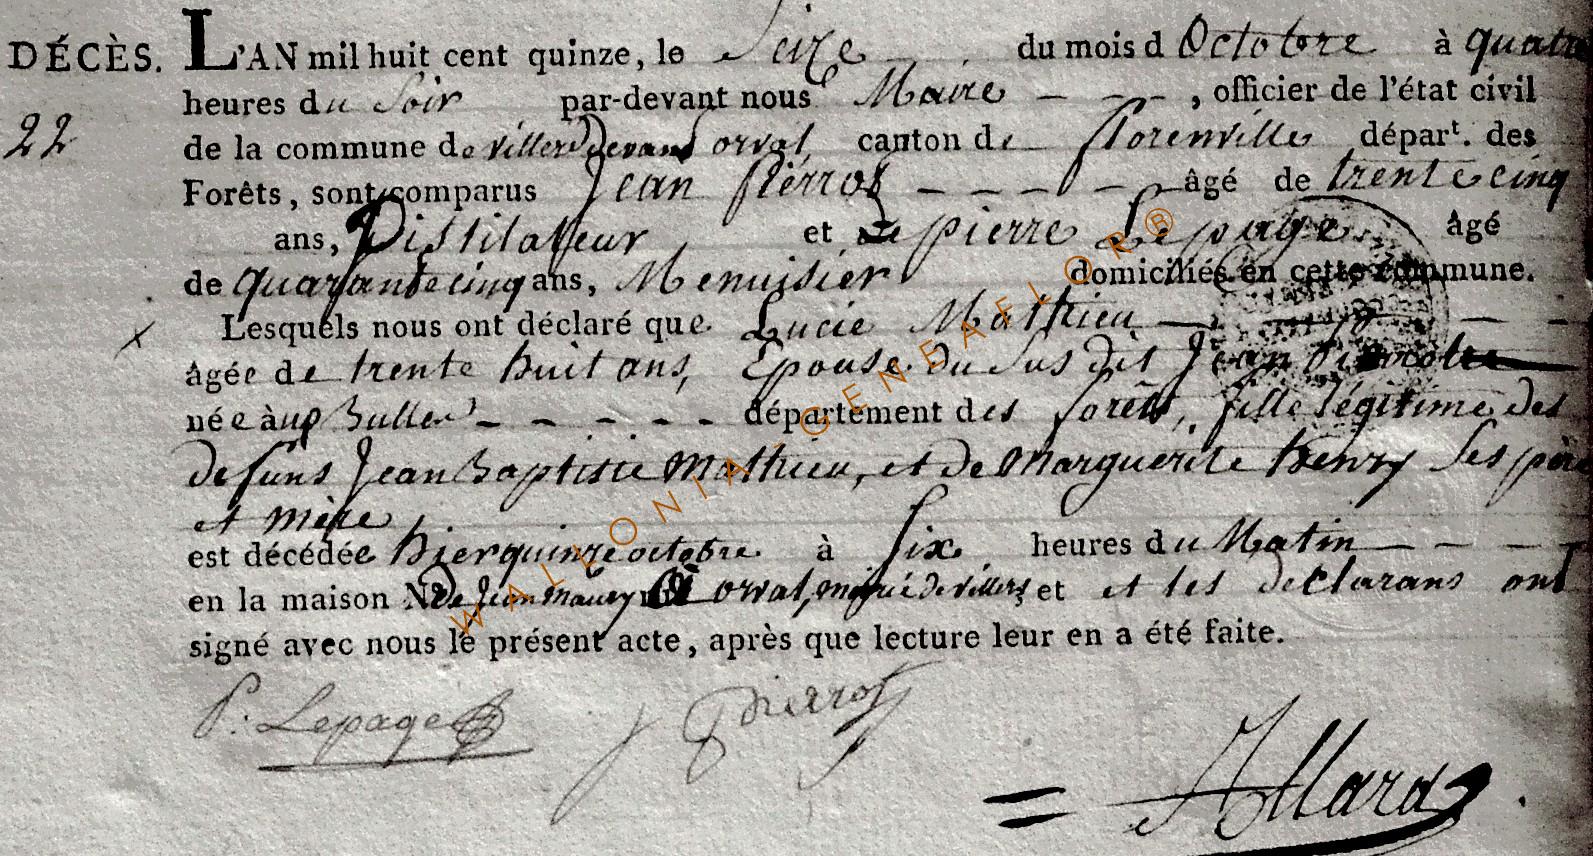 DÉCÈS. L'AN mil huit cent quinze, le Seize du mois d Octobre à quatre
heures du Soir par-devant nous Maire - - - , officier de l'état civil
22
de la commune de villers Devant orval canton de florenvilleépart. des
Forêts, sont comparus Jean Pierrot - - - - - âgé de trente cinq
ans, Distilateur et de pierre Lepage âgé
de quarante cinq ans, Menuisier domiciliés en cette commune.
x Lesquels nous ont déclaré que Lucie Mathieu
âgée de trente huit ans, Epouse du Sus dit Jean
née à Bulles - - - - - département des forêts, fille légitime des
defuns Jean Baptiste Mathieu, et de Marguerite henry Ses père
et mère
est décédée hier quinze octobre à Six heures du Matin - - - -
en la maison N De Jean orval, de villers et et les declarans ont
signé avec nous le présent acte, après que lecture leur en a été faite.
P. Lepage J Pierrot
= Allard
WALLONIA-GENEAFLOR®